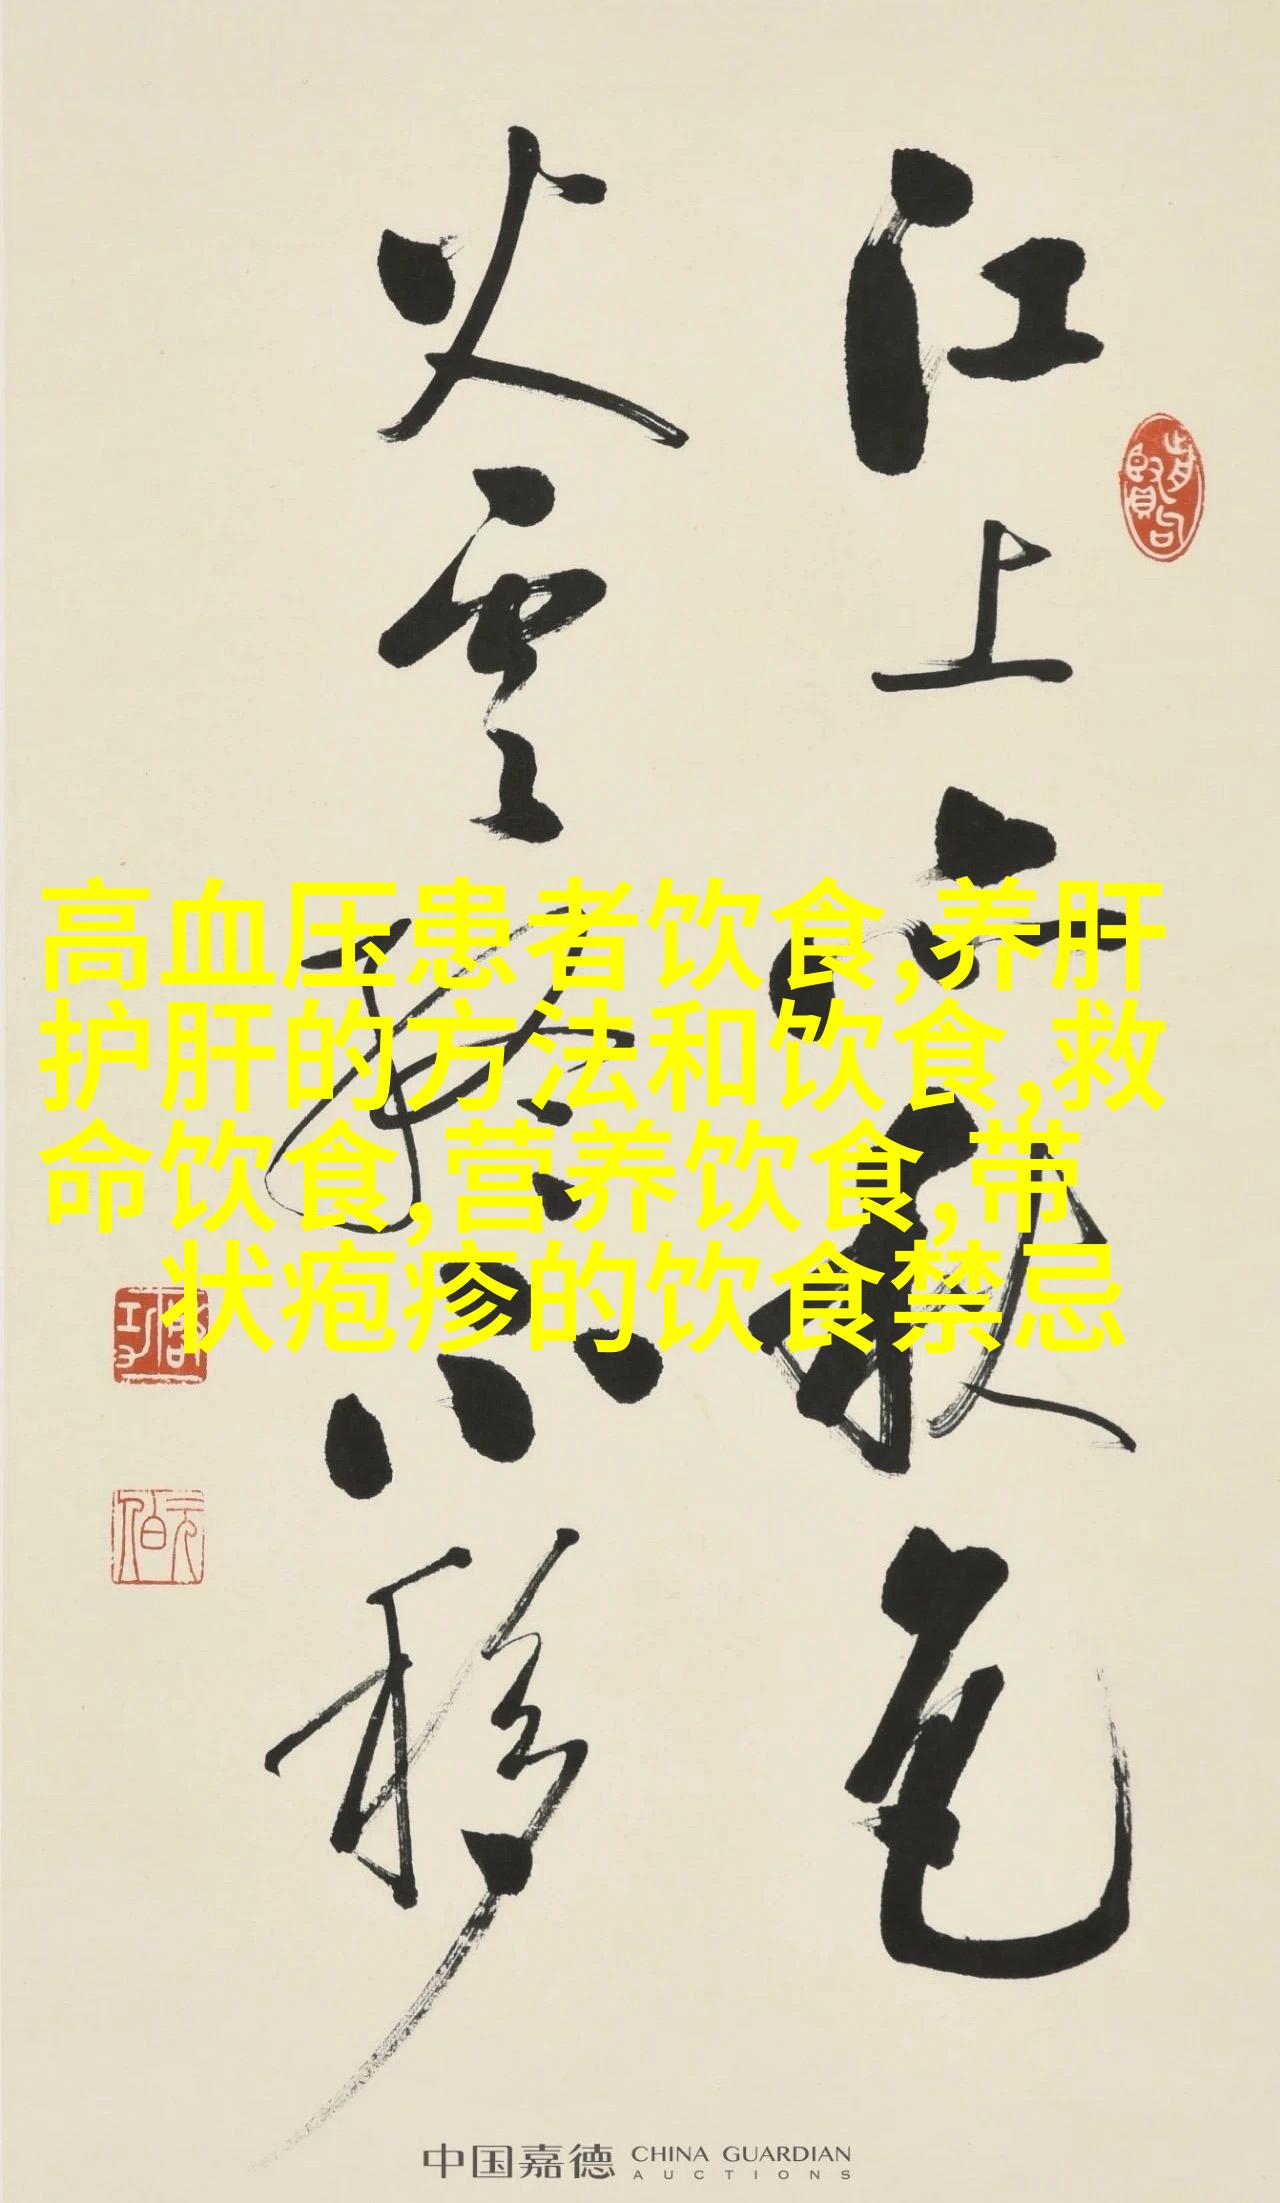 江上亦秋色
火雲終不移
啟功
元白
高血压患者饮食,养肝
护肝的方法和饮食,救
命饮食,营养饮食,带
状疱疹的饮食禁忌
中国嘉德 CHINA GUARDIAN
AUCTIONS